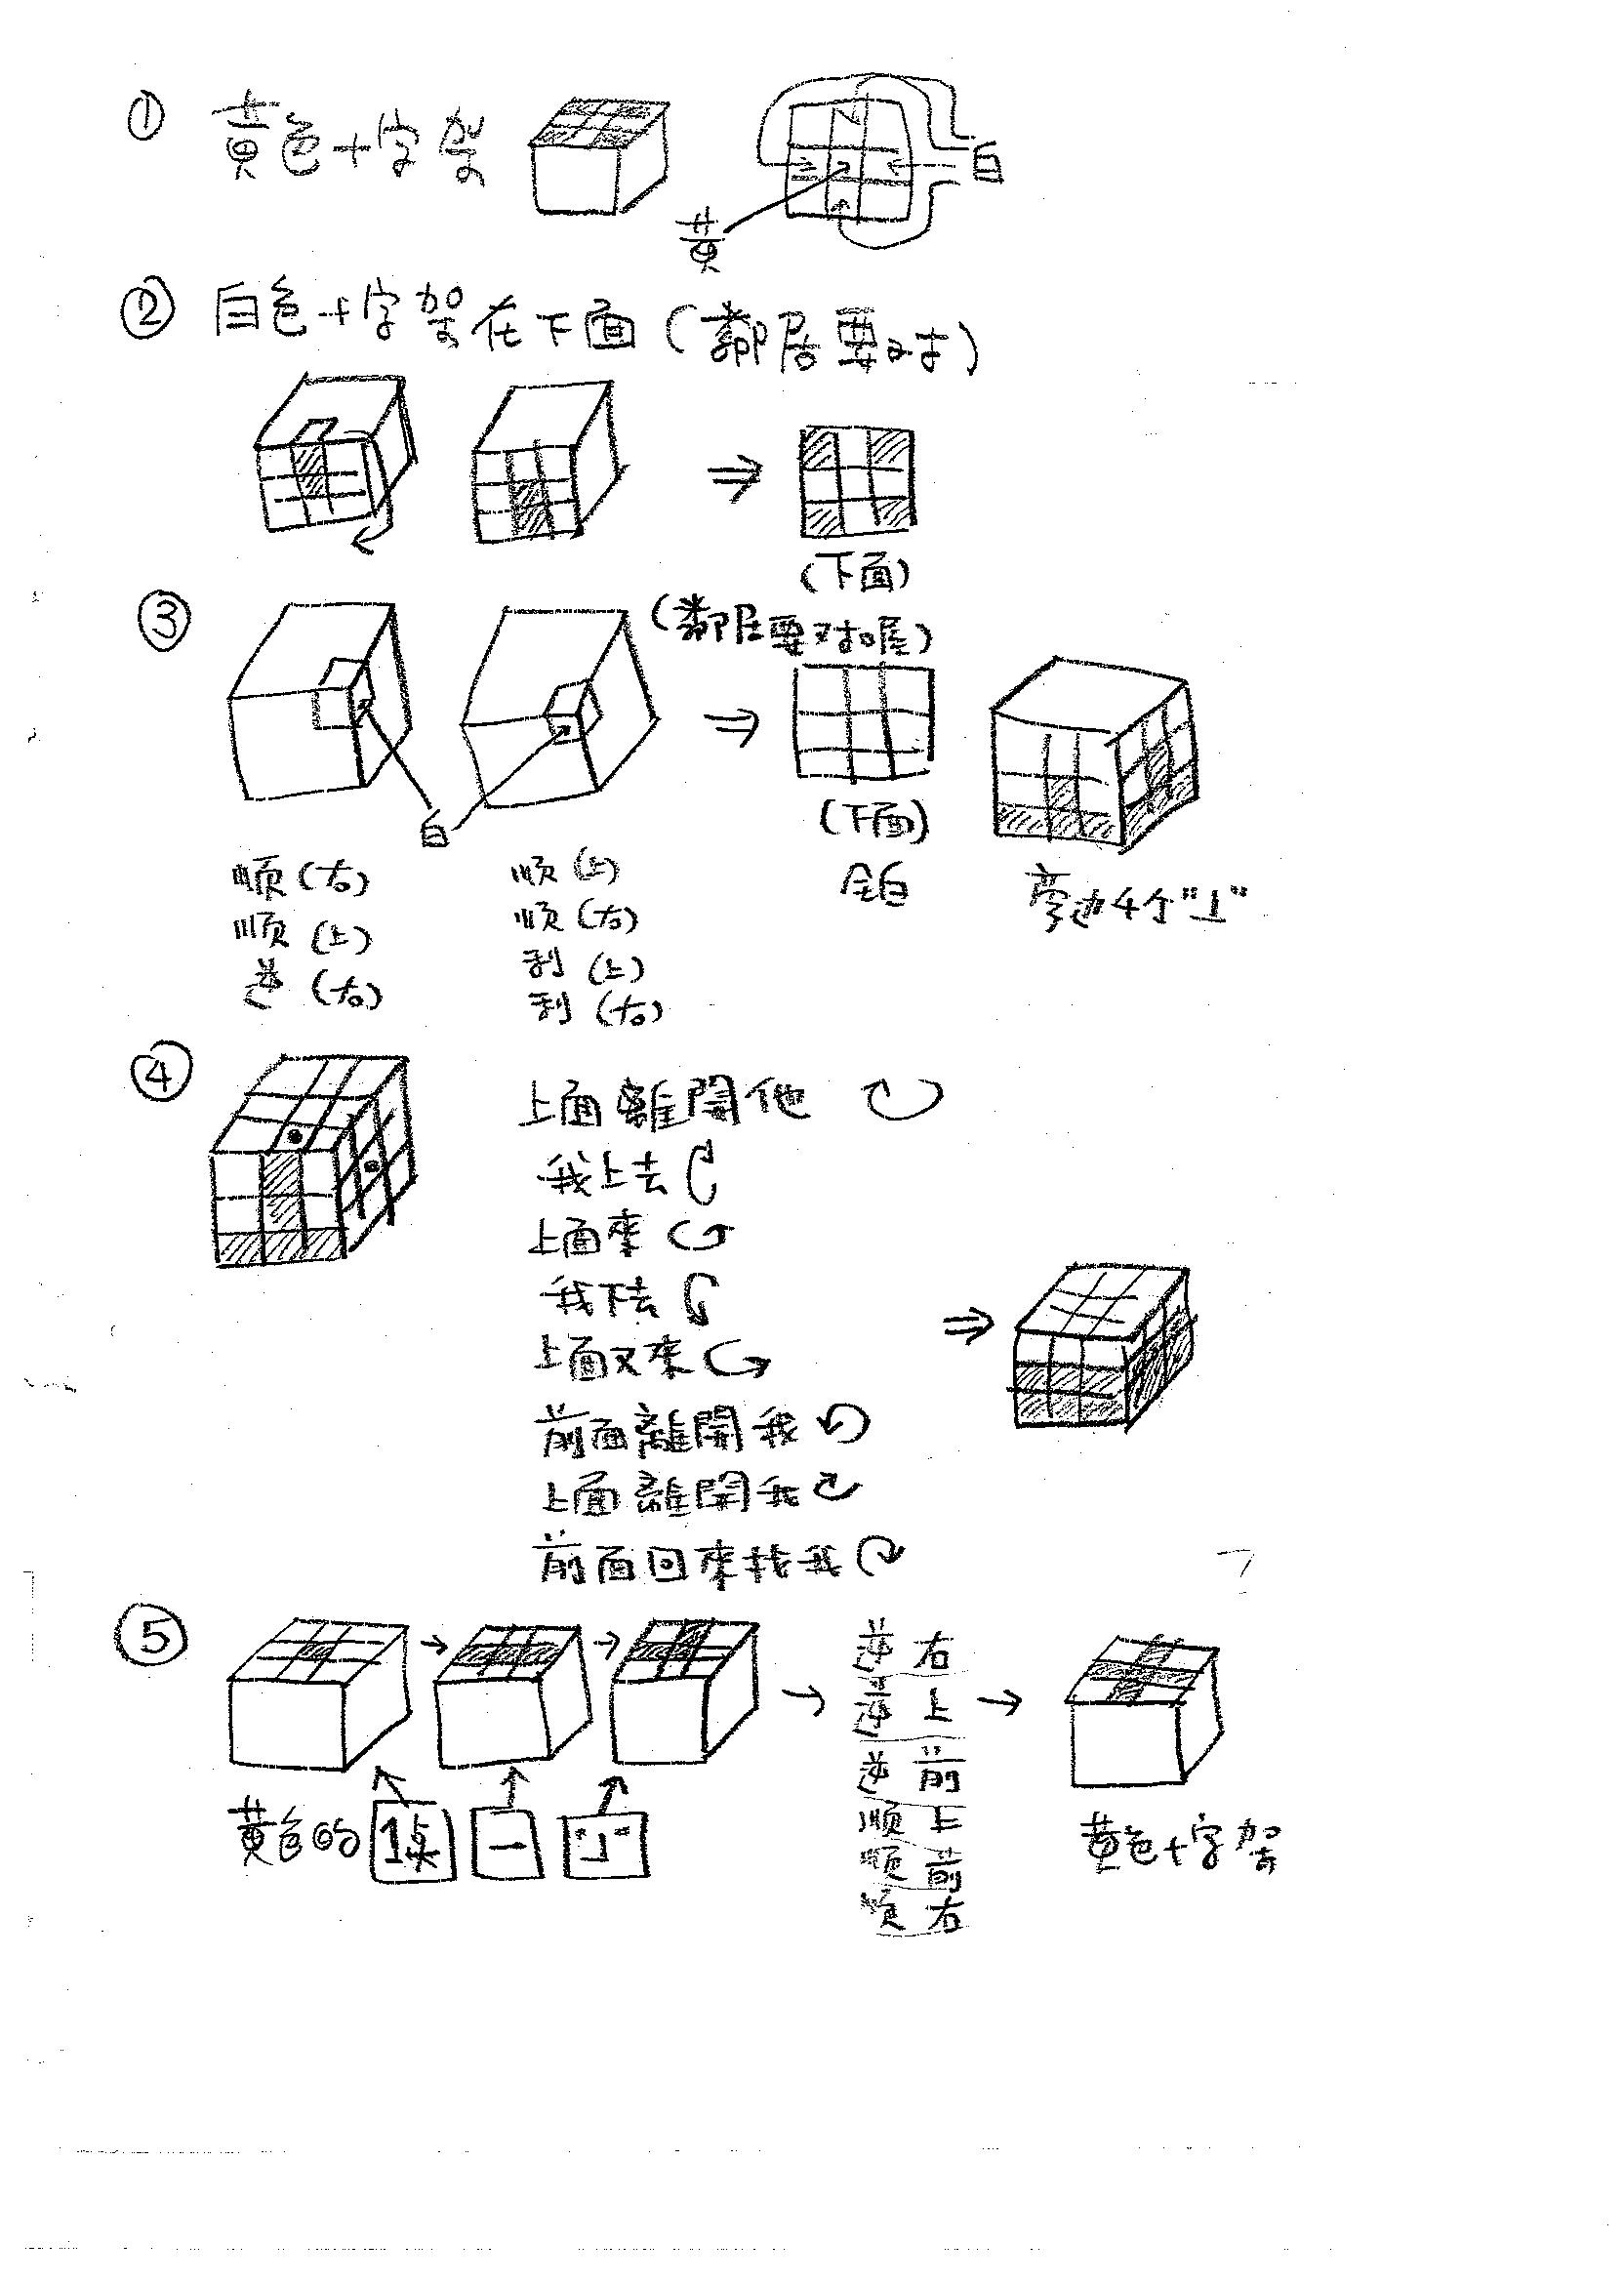 ① 黄色十字架
白
黄
② 白色十字架在下面(鄰居要对)
(下面)
③ (鄰居要对喔)
白
(下面)
全白
旁边4个"⊥"
順(右)
順(上)
逆(右)
順(上)
順(右)
利(上)
利(右)
④ 上面離開他
我上去
上面來
我下去
上面又來
前面離開我
上面離開我
前面回來找我
⑤ 逆右
逆上
逆前
順上
順前
順右
黄色的 1点 一 "⅃"
黄色十字架